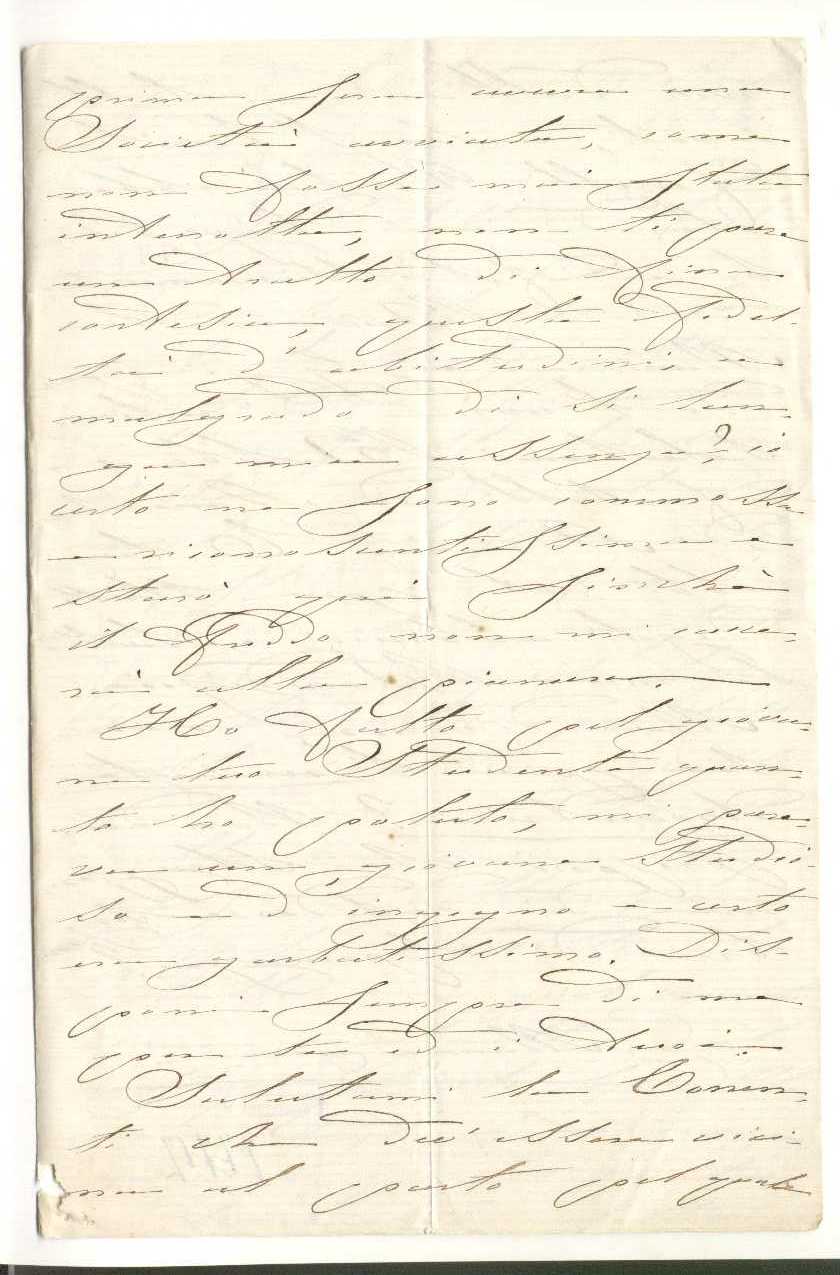 prima sera aveva una
Società avviata, come
non fosse mai stata
interrotta, non ti pare
un tratto di fina
cortesia, questa fedel-
tà d'abitudini, e
malgrado di sì lun-
ga mia assenza?, io
certo ne sono commossa
e riconoscentissima e
starò qui finchè
il freddo non mi cacce-
rà alla pianura.
Ho fatto pel giova-
ne tuo Studente quan-
to ho potuto, mi pare-
va un giovane studio-
so e d'ingegno e certo
era garbatissimo. Dis-
poni sempre di me
per te ed i tuoi.
Salutami la Corren-
ti che de' essere vici-
na al parto pel quale